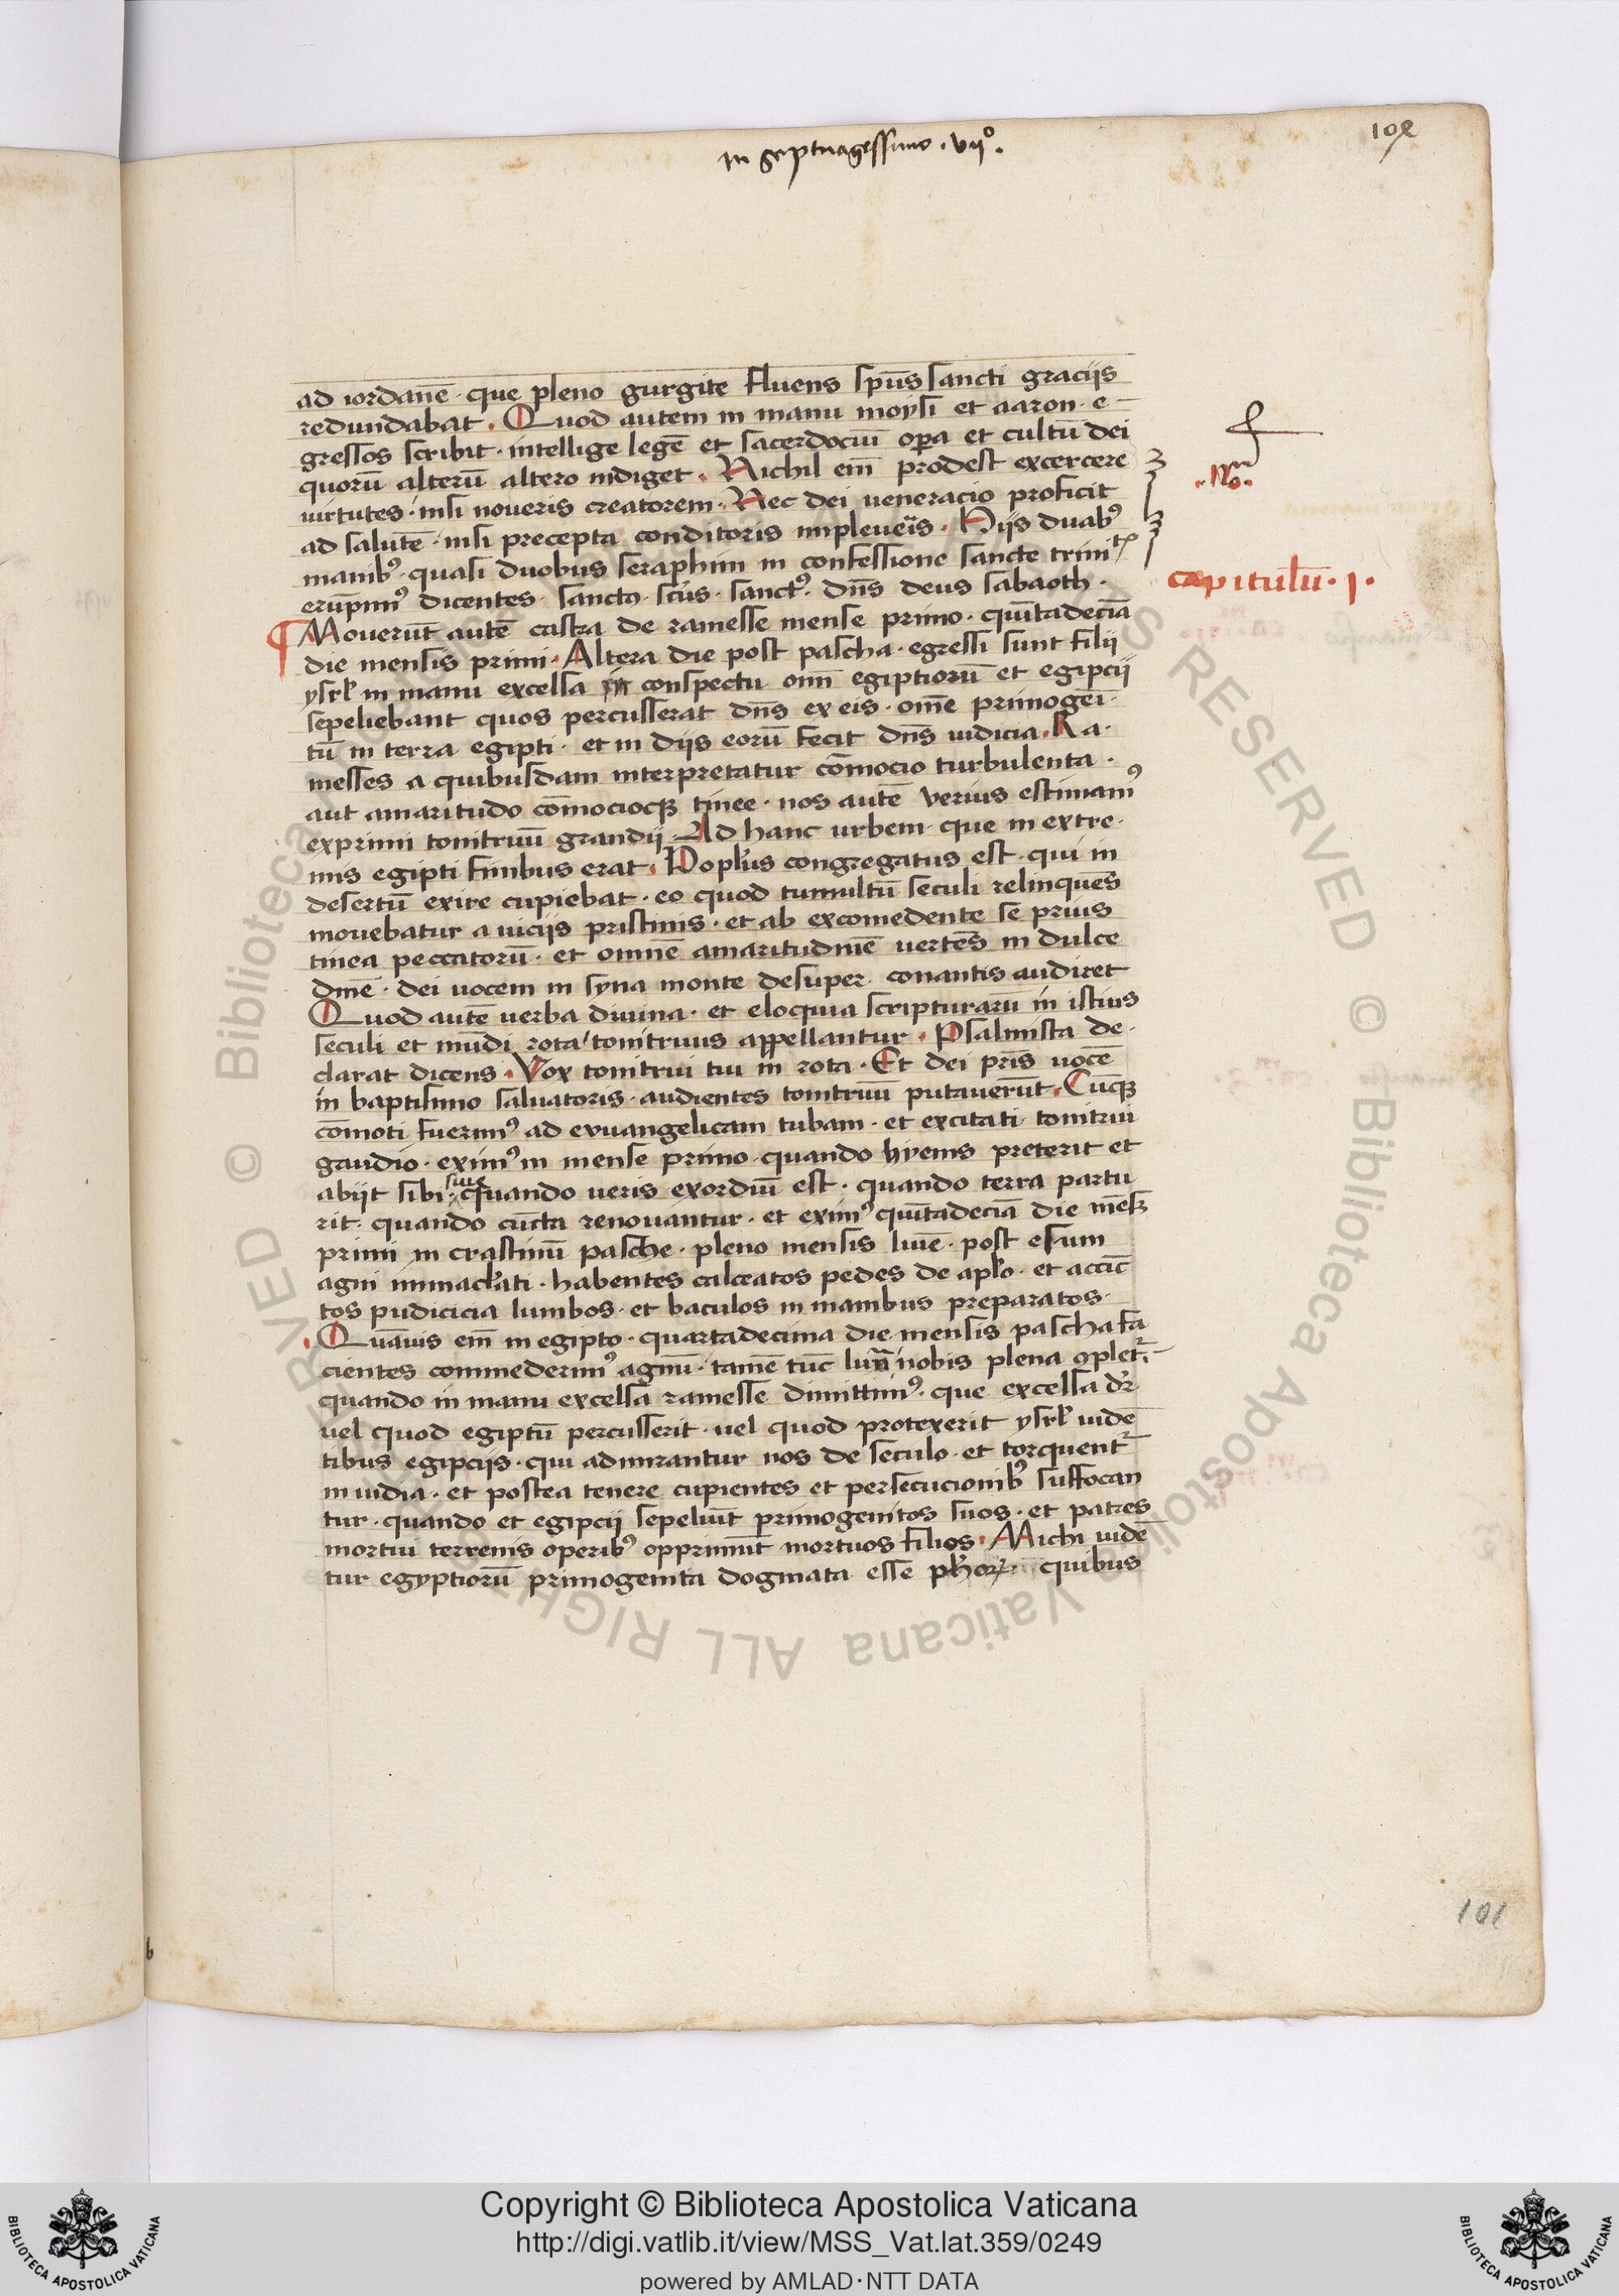 in septuagessimo . vijº.
102
ad iordanē · que pleno gurgite fluens spūs sancti graciis
redundabat . Quod autem in manu moysi et aaron · e-
gressos scribit · intellige legē et sacerdociū opa et cultū dei
quorū alterū altero indiget . Nichil em̄ prodest excercere
.No.
uirtutes · nisi noueris creatorem . Nec dei ueneracio proficit
ad salutē · nisi precepta conditoris impleueris . Hijs duabꝰ
manibꝰ · quasi duobus seraphim in confessione sancte trini
capitulū . j .
erūpimꝰ dicentes · sanctꝰ · scūs · sanctꝰ · dn̄s deus sabaoth ·
¶ Mouerūt autē castra de ramesse mense primo · quītadecīa
die mensis primi . Altera die post pascha · egressi sunt filij
ysrl̄ in manu excelsa in conspectu om̄ egiptiorū et egipcij
sepeliebant quos percusserat dn̄s ex eis · om̄e primogeī·
tū in terra egipti · et in dijs eorū fecit dn̄s iudicia . Ra·
messes a quibusdam interpretatur cōmocio turbulenta ·
aut amaritudo cōmocioqꝫ tinee · nos autē verius estimamꝰ
exprimi tonitruū grandij . Ad hanc urbem · que in extre·
mis egipti finibus erat . Popl̄us congregatus est · qui in
desertū exire cupiebat · eo quod tumultū seculi relinquēs
mouebatur a uicijs pristinis · et ab excomedente se prius
tinea peccatorū · et omnē amaritudinē uertēs in dulce
dinē · dei uocem in syna monte desuper conantis audiret
Quod autē uerba diuina · et eloquia scripturarū in istius
seculi et mūdi rota tonitruus appellantur . Psalmista de·
clarat dicens . Vox tonitrui tui in rota . Et dei pr̄is uocē
in baptismo saluatoris · audientes tonitruū putauerūt . Cūqꝫ
cōmoti fuerimꝰ ad evuangelicam tubam · et excitati tonitrui
gaudio · eximꝰ in mense primo · quando hyems preterit et
abijt sibi · quando ueris exordiū est · quando terra partu
rit · quando cūcta renouantur · et eximꝰ quītadecīa die mēsꝫ
primi in crastinū pasche · pleno mensis luīe · post esum
agni immacl̄ati · habentes calceatos pedes de apl̄o · et accīc
tos pudicicia lumbos · et baculos in manibus preparatos ·
Quāuis em̄ in egipto · quartadecima die mensis pascha fa
cientes commederimꝰ agnū · tamē tūc luna nobis plena ꝯpletr̄
quando in manu excelsa ramesse dimittimꝰ · que excelsa dr̄
uel quod egiptū percusserit · uel quod protexerit ysrl̄ uidē
tibus egipcijs · qui admirantur nos de seculo · et torquentr̄
inuidia · et postea tenere cupientes et persecucionibꝰ suffocan
tur · quando et egipcij sepeliūt primogenitos suos · et patres
mortui terrenis operibꝰ opprimūt mortuos filios . Michi uidē
tur egyptiorū primogenita dogmata esse ph̄oꝝ quibus
101
b
Copyright © Biblioteca Apostolica Vaticana
http://digi.vatlib.it/view/MSS_Vat.lat.359/0249
powered by AMLAD·NTT DATA
BIBLIOTECA APOSTOLICA VATICANA
BIBLIOTECA APOSTOLICA VATICANA